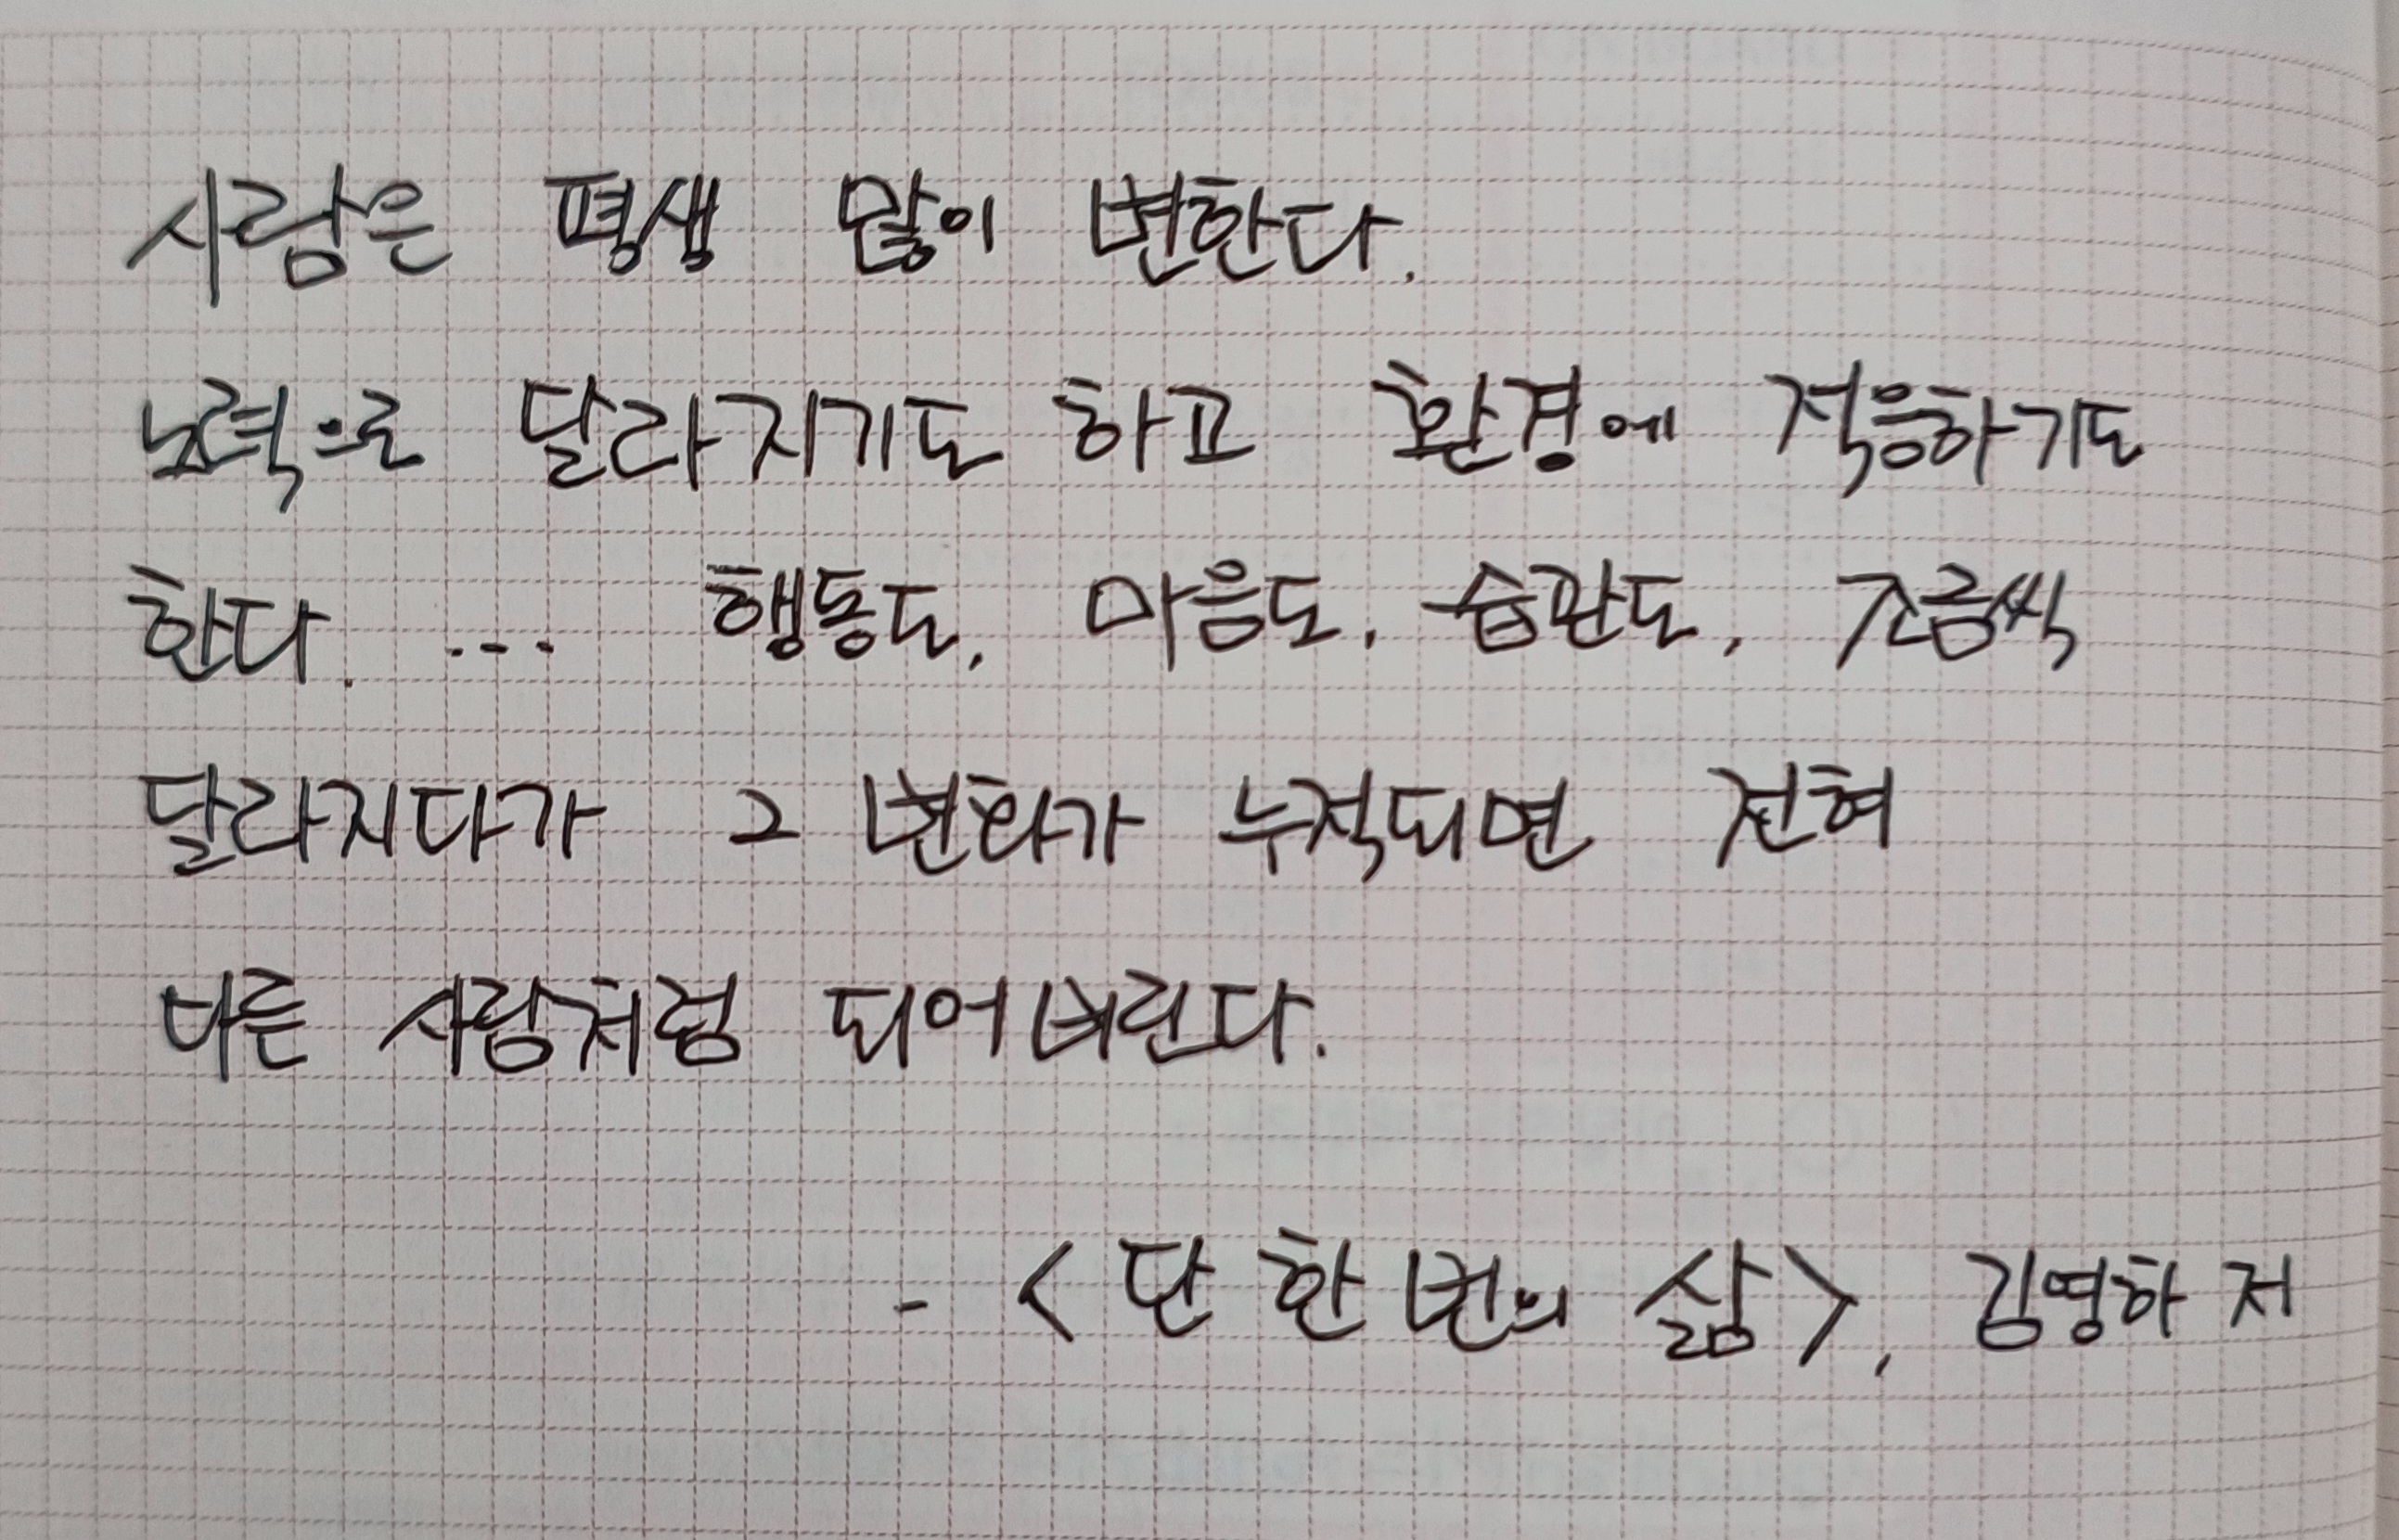 사람은 평생 많이 변한다.
노력으로 달라지기도 하고 환경에 적응하기도
한다. ... 행동도, 마음도, 습관도, 조금씩
달라지다가 그 변화가 누적되면 전혀
다른 사람처럼 되어버린다.
- <단 한 번의 삶>, 김영하 저